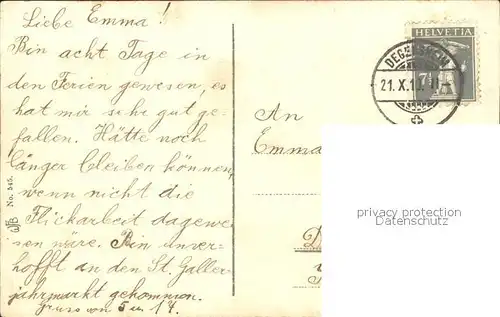 Liebe Emma!
Bin acht Tage in
den Ferien gewesen, es
hat mir sehr gut ge-
fallen. Hätte noch
länger bleiben können,
wenn nicht die
Flickarbeit dagewe-
sen wäre. Bin unver-
hofft an den St. Galler
jahrmarkt gekommen.
Gruss von
An
Emma
HELVETIA
7½
DEGERSHEIM
21.X.10.
No. 545.
privacy protection
Datenschutz